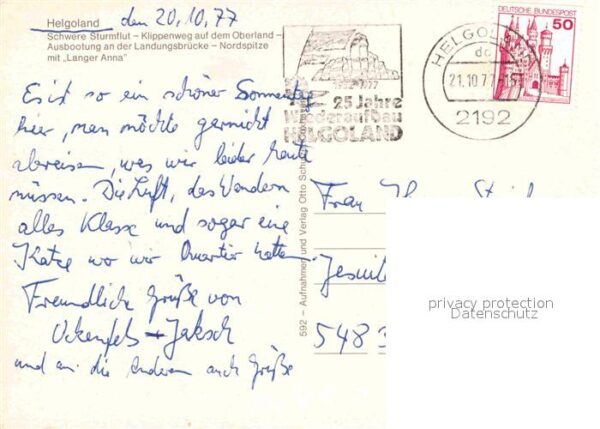 Helgoland den 20.10.77
Schwere Sturmflut – Klippenweg auf dem Oberland –
Ausbootung an der Landungsbrücke – Nordspitze
mit „Langer Anna"
Es ist so ein schöner Sonnentag
hier, man möchte garnicht
abreisen, was wir leider heute
müssen. Die Luft, das Wandern
alles Klasse und sogar eine
Katze wo wir Quartier hatten.
Freundliche Grüße von
Ockenfels + Jaksch
und an die Anderen auch Grüße
592 – Aufnahmen und Verlag Otto
1952-1977
25 Jahre
Wiederaufbau
HELGOLAND
HELGOLAND
dc
21.10.77
2192
DEUTSCHE BUNDESPOST
50
Frau
548
privacy protection
Datenschutz